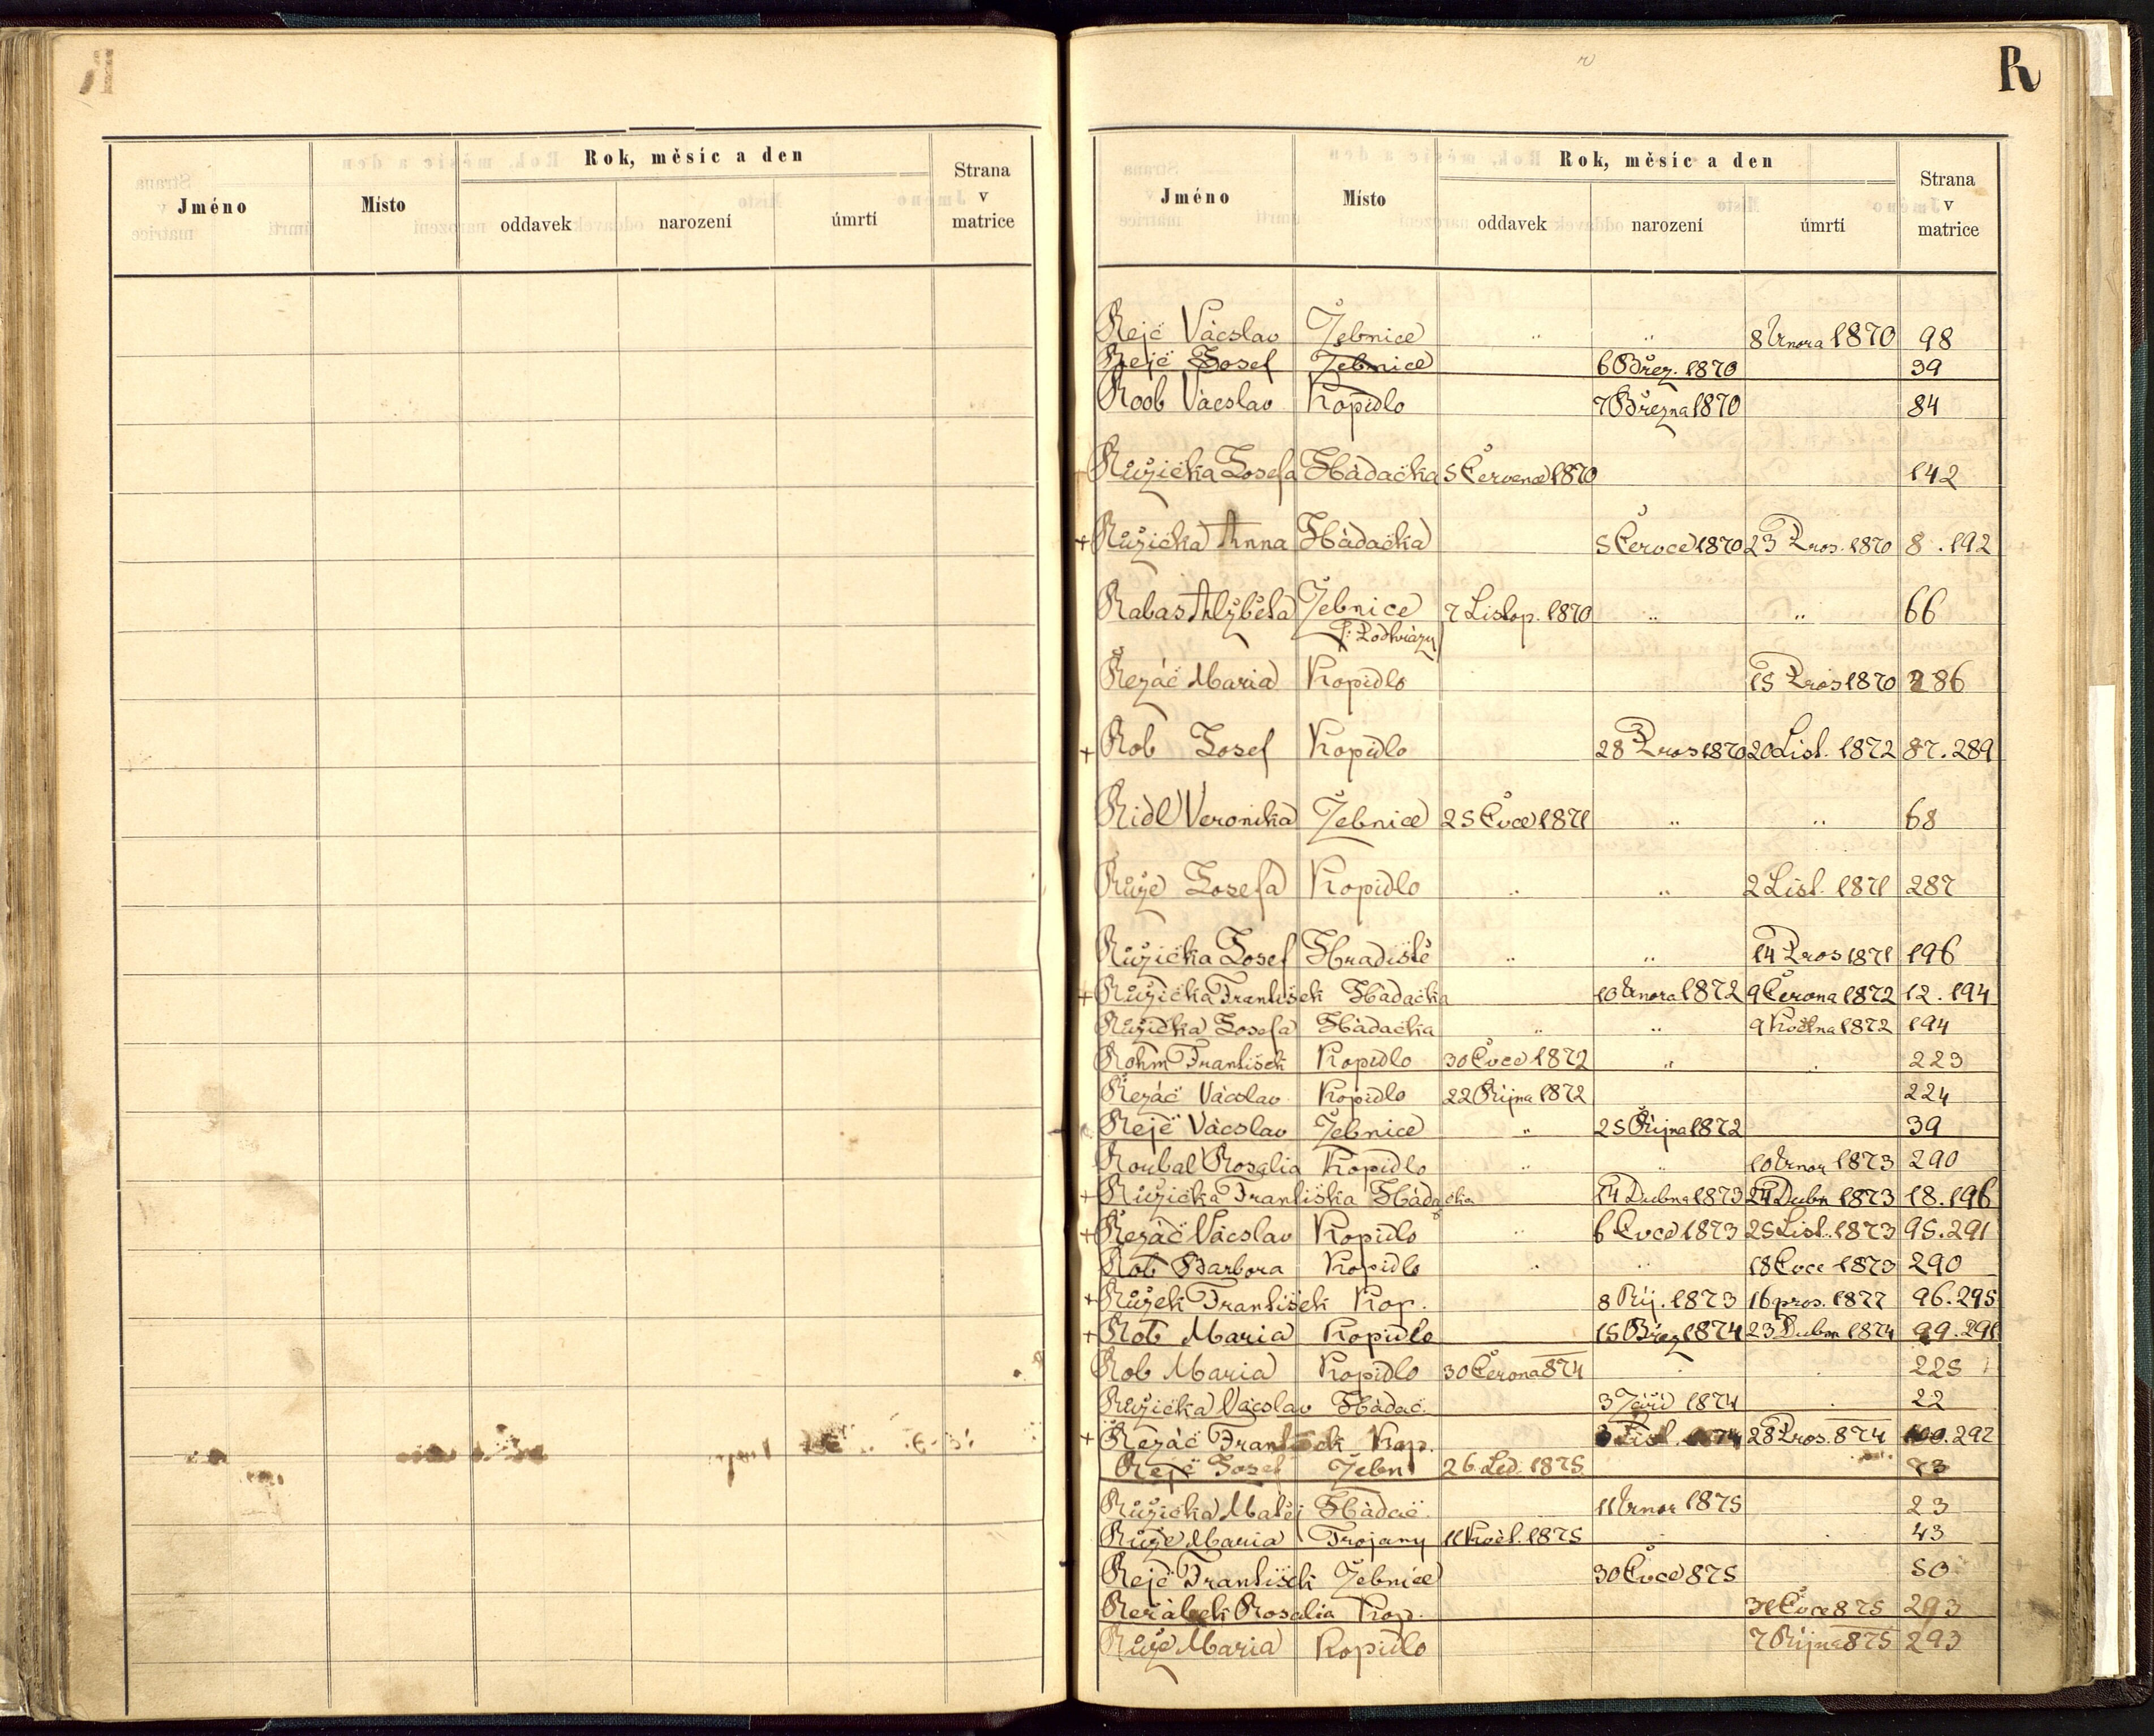 R
Rok, měsíc a den
Strana
v
matrice
Jméno Místo
oddavek narození úmrtí
Rok, měsíc a den
Strana
v
matrice
Jméno Místo
oddavek narození úmrtí
Rejč Vácslav Žebnice " " 8 Února 1870 98
Rejč Josef Žebnice 6 Břez. 1870 39
Roob Vácslav Kopidlo 7 Března 1870 84
Růžička Josefa Hádačka 5 Července 1870 142
+ Růžička Anna Hádačka 5 Červce 1870 23 Pros. 1870 8 . 192
Rabas Alžběta Žebnice 7 Listop. 1870 " " 66
Řezáč Maria Kopidlo 15 Pros 1870 286
+ Rob Josef Kopidlo 28 Pros 1870 20 List. 1872 87. 289
Ridl Veronika Žebnice 25 Čvce 1871 " " 68
Růže Josefa Kopidlo " " 2 List. 1871 287
Růžička Josef Hradiště " " 14 Pros 1871 196
+ Růžička František Hádačka 10 Února 1872 9 Června 1872 12. 194
Růžička Josefa Hádačka " " 9 Května 1872 194
Rohm František Kopidlo 30 Čvce 1872 " 223
Řezáč Vácslav Kopidlo 22 Října 1872 224
Rejč Vácslav Žebnice " 25 Října 1872 39
Roubal Rosalia Kopidlo " " 10 Únor 1873 290
+ Růžička Františka Hádačka 14 Dubna 1873 24 Dubn 1873 18. 196
+ Řezáč Vácslav Kopidlo " 6 Čvce 1873 25 List. 1873 95. 291
Rob Barbora Kopidlo 18 Čvce 1873 290
+ Růžek František Kop. 8 Říj. 1873 16 pros. 1877 96. 295
+ Rob Maria Kopidlo 15 Břez 1874 23 Dubn 1874 99. 291
Rob Maria Kopidlo 30 Června 874 225
Růžička Vácslav Hádač. 3 Září 1874 22
+ Řezáč František Kop. List. 1874 28 Pros. 874 100. 292
Rejč Josef Žebn 26 Led. 1875 73
Růžička Matěj Hádač. 11 Únor 1875 23
Růže Maria Trojany 11 Květ. 1875 43
Rejč František Žebnice 30 Čvce 875 50
Řeřábek Rosalia Kop. 31 Čvce 875 293
Růže Maria Kopidlo 7 Října 875 293